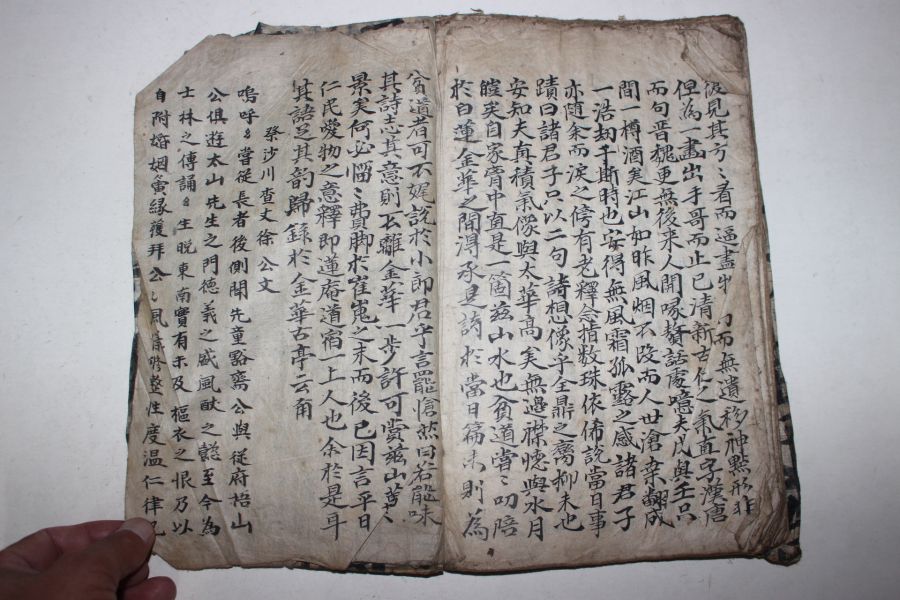 彼見其方〻看而逼盡 而無遺移神點形非
但為一畵出手哥而止已清新古 之氣直字漢唐
而句晋魏更無後來人開喙贅話處噫夫 與主只
間一樽酒矣江山如昨風烟不改而人世滄桒翻成
一浩劫于斯時也安得無風霜孤露之感諸君子
亦随余而淚之停有老釋念指数珠依俙說當日事
蹟曰諸君子只以二句諸想像乎全鼎之臠抑未也
安知夫真積氣像與太華高矣無邊襟懷與水月
皚矣自家胷中直是一箇 山水也貧道嘗〻叨陪
於白蓮金華之間得承是詩於當日篇末則為
貧道者可不娓說於小郎君乎言罷愴然曰若能味
其詩志其意則不離金華一步許可賞玆山
景矣何必惱〻費脚於崔嵬之末而後已因言平日
仁民愛物之意釋即蓮庵道宿一上人也余於是耳
其語足其韵歸錄於金華古亭云甪
祭沙川查丈徐公文
嗚呼〻當從長者後側聞先童谿齋公與従府梧山
公俱逰太山先生之門德義之盛風猷之懿至今為
士林之傳誦〻生晚東南實有未及樞衣之恨乃以
自附婚姻夤縁獲拜公〻風 修整性度温仁律己